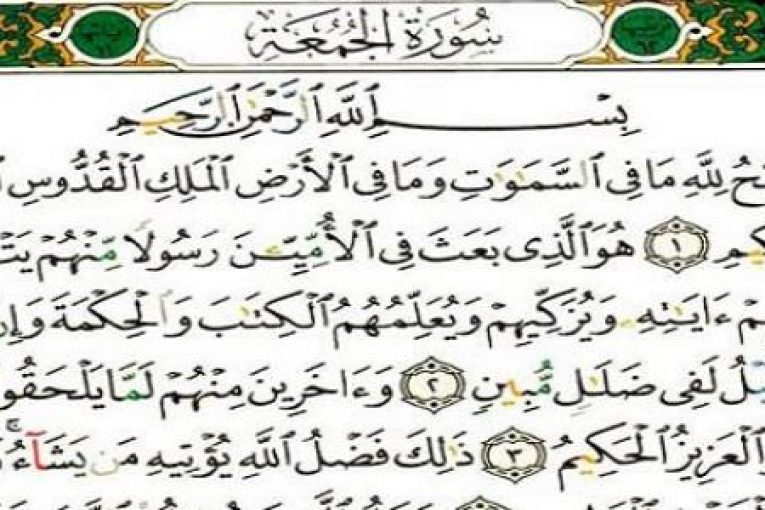 سُورَةُ الجُمُعَةِ
بِسْمِ اللَّهِ الرَّحْمَٰنِ الرَّحِيمِ
لِلَّهِ مَا فِي السَّمَاوَاتِ وَمَا فِي الْأَرْضِ الْمَلِكِ الْقُدُّوسِ
١ هُوَ الَّذِي بَعَثَ فِي الْأُمِّيِّينَ رَسُولًا مِّنْهُمْ
ءَايَاتِهِ وَيُزَكِّيهِمْ وَيُعَلِّمُهُمُ الْكِتَابَ وَالْحِكْمَةَ
لَفِي ضَلَالٍ مُّبِينٍ ٢ وَءَاخَرِينَ مِنْهُمْ لَمَّا
الْعَزِيزُ الْحَكِيمُ ٣ ذَٰلِكَ فَضْلُ اللَّهِ يُؤْتِيهِ مَن يَشَآءُ